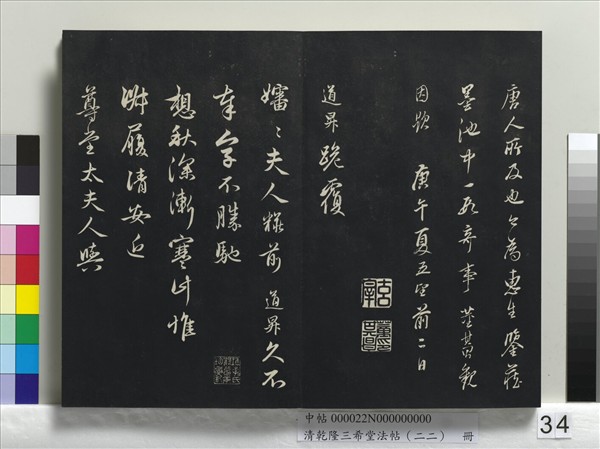 唐人所及也今為惠生鑒藏
墨池中一段奇事 董其昌觀
因題 庚午夏五望前二日
道昇跪覆
嬸〻夫人糚前 道昇久不
奉字不勝馳
想秋深漸寒計惟
淑履清安近
尊堂太夫人與
中帖 000022N000000000
清乾隆三希堂法帖(二二) 冊
34